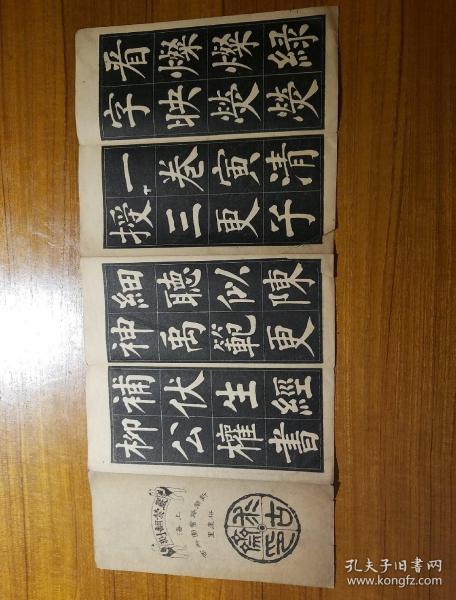 看燦燦綠
字映熒熒
一卷寅清
授三更子
細聽似陳
神禹範更
補伏生經
柳公權書
上海
孔夫子旧书网
www.kongfz.com